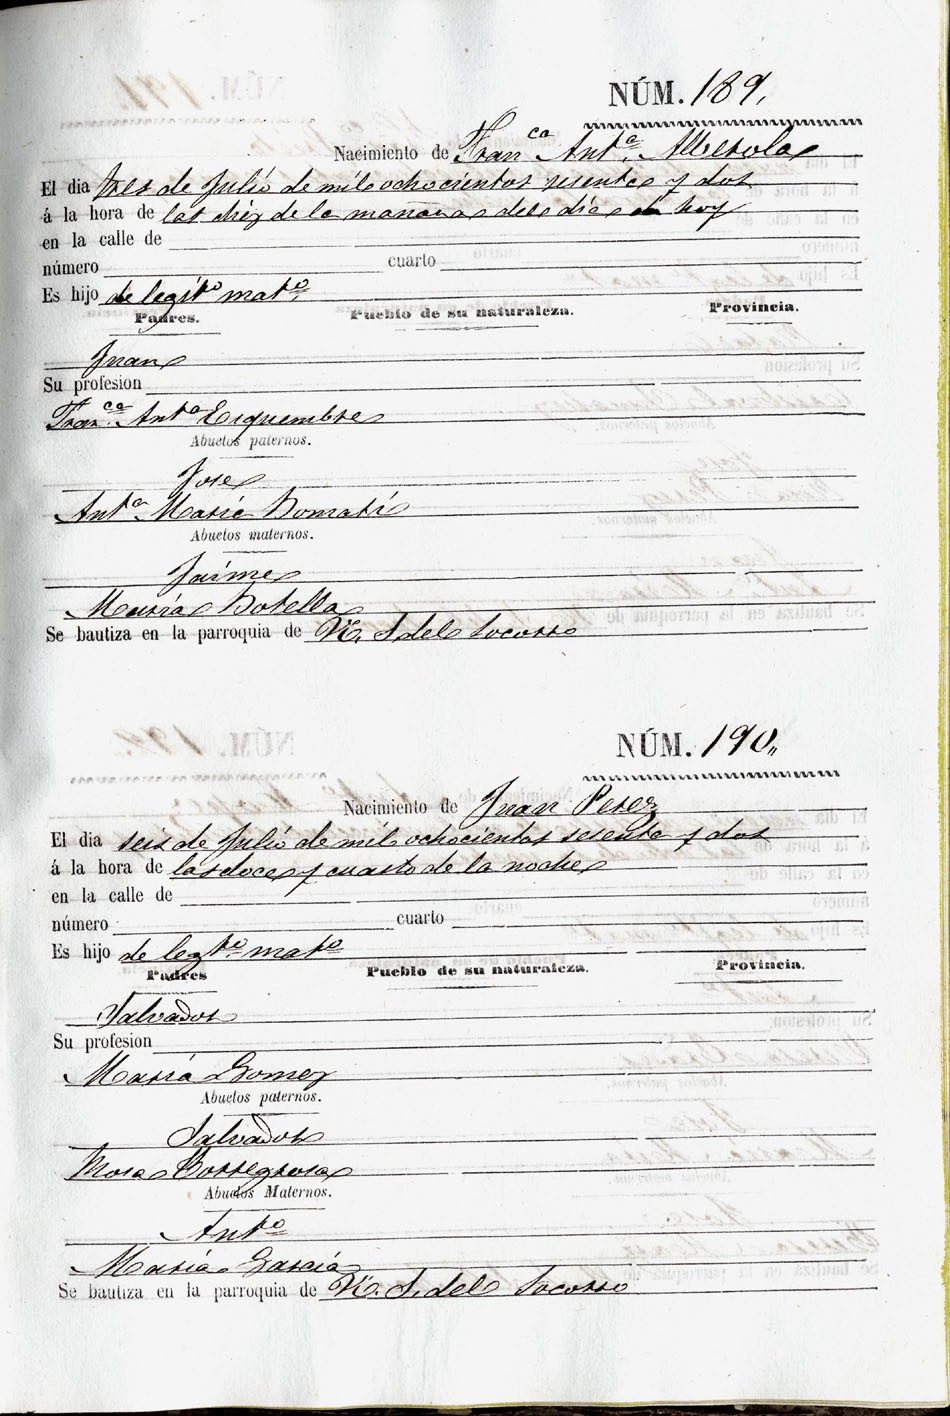 NÚM. 189.
Nacimiento de Fran.ca Ant.a Alberola
El dia tres de Julio de mil ochocientos sesenta y dos
á la hora de las diez de la mañana del dia de hoy
en la calle de
número cuarto
Es hijo de legit.o mat.o
Padres. Pueblo de su naturaleza. Provincia.
Juan
Su profesion
Fran.ca Ant.a Esquembre
Abuelos paternos.
Jose
Ant.a Maria Domati
Abuelos maternos.
Jaime
Maria Botella
Se bautiza en la parroquia de N. S. del Socorro
NÚM. 190,,
Nacimiento de Juan Perez
El dia seis de Julio de mil ochocientos sesenta y dos
á la hora de las doce y cuarto de la noche
en la calle de
número cuarto
Es hijo de legt.o mat.o
Padres Pueblo de su naturaleza. Provincia.
Salvador
Su profesion
María Gomez
Abuelos paternos.
Salvador
Rosa Borregrosa
Abuelos Maternos.
Ant.o
María García
Se bautiza en la parroquia de N. S. del Socorro